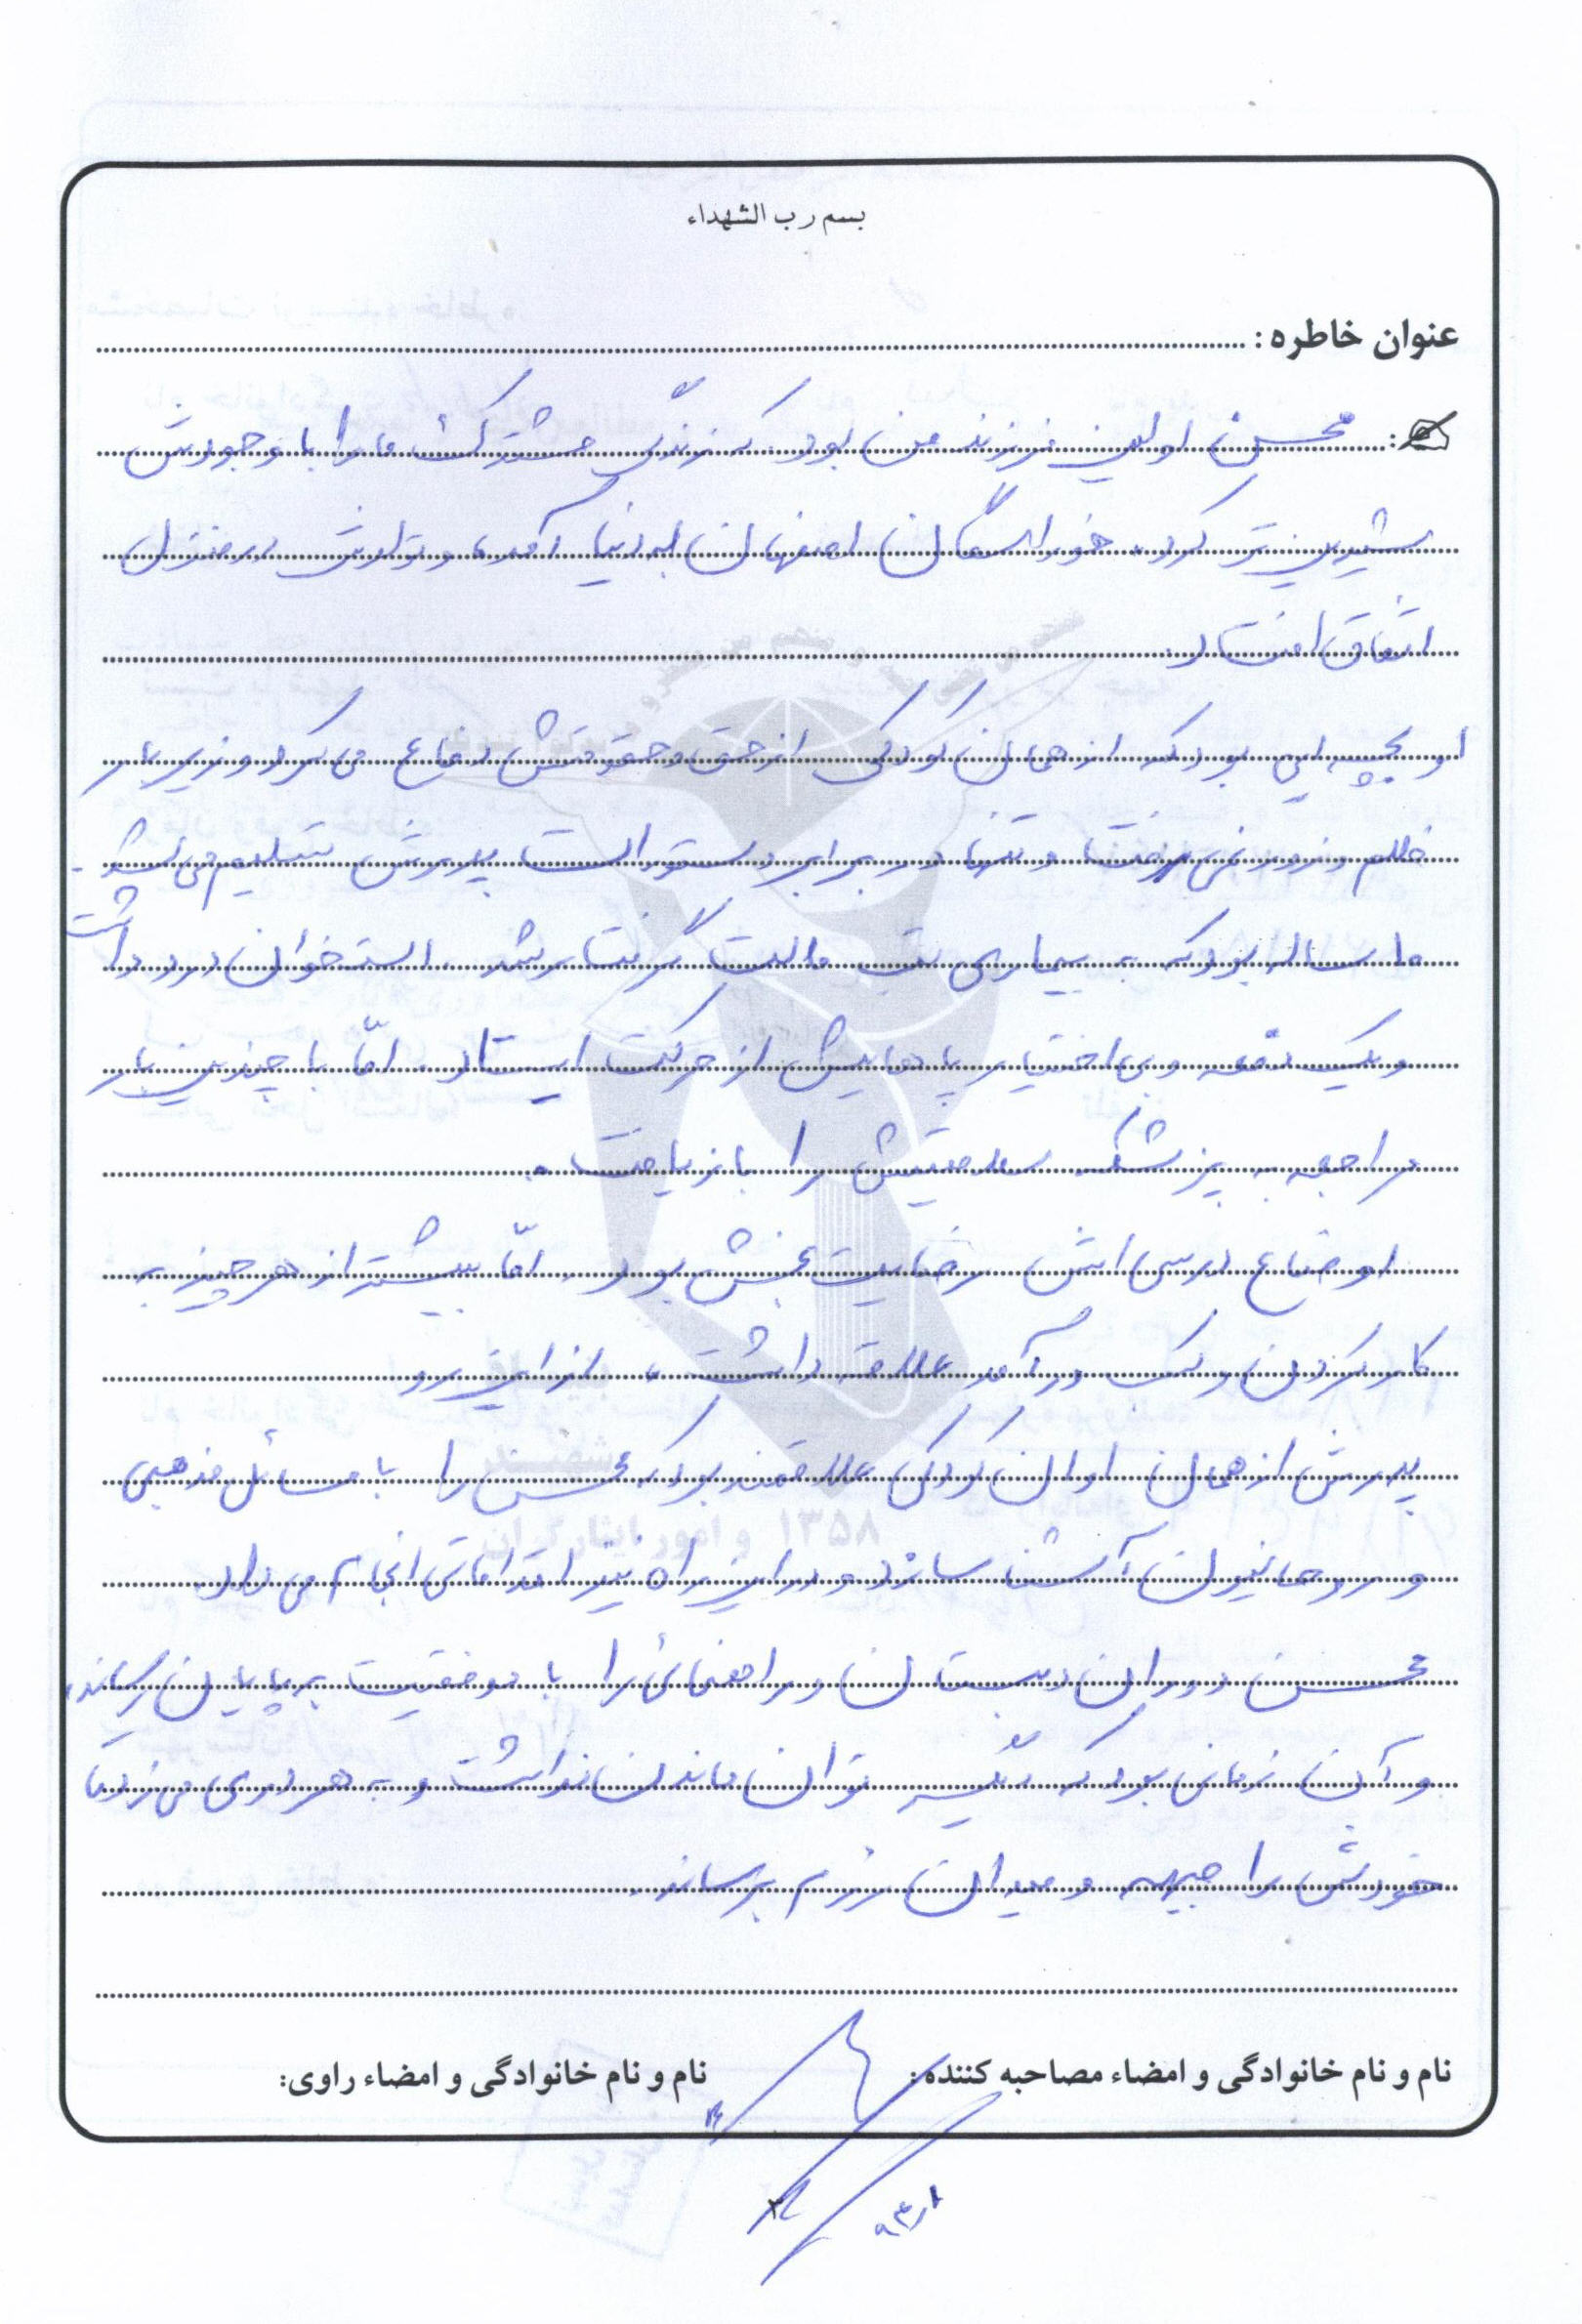 بسم رب الشهداء
عنوان خاطره:
محسن اولین فرزند من بود که زندگی مشترک ما را با وجودش
شیرین تر کرد. خوراسگان اصفهان به دنیا آمد، و تولدش در منزل
اتفاق افتاد.
او بچه ایی بود که از همان کودکی از حق و حقوقش دفاع می کرد و زیر بار
ظلم و زور نمی رفت و تنها در برابر دستورات پدرش تسلیم می شد.
ساله بود که به بیماری تب مالت گرفتار شد. استخوان درد داشت
و یک دفعه و بی اختیار پاهایش از حرکت ایستاد. امّا با چندین بار
مراجعه به پزشک سلامتیش را باز یافت.
اوضاع درسی اش رضایت بخش بود. امّا بیشتر از هر چیز به
کار کردن و کسب درآمد علاقه داشت، از این رو
پدرش از همان اوان کودکی علاقمند بود که محسن را با مسائل مذهبی
و روحانیون آشنا سازد و در این راه نیز اقداماتی انجام می داد.
محسن دوران دبستان و راهنمائی را با موفقیت به پایان رساند،
و آن زمانی بود که دیگر توان ماندن نداشت و به هر دری می زد تا
خودش را جبهه و میدان رزم برساند.
نام و نام خانوادگی و امضاء مصاحبه کننده:
نام و نام خانوادگی و امضاء راوی: